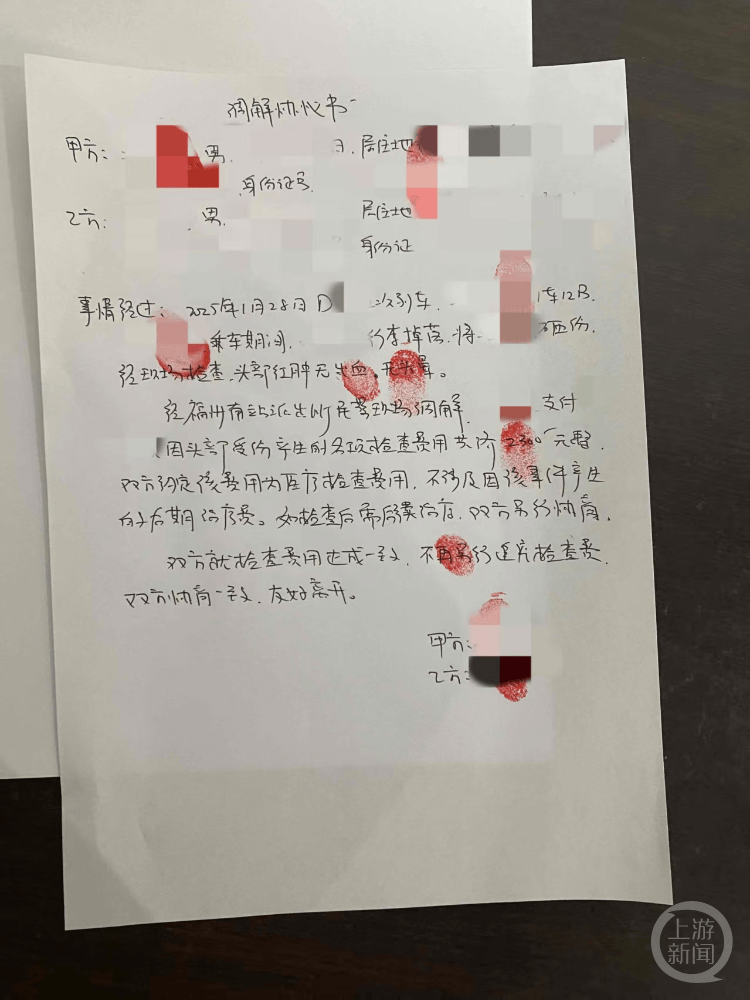 调解协议书
甲方： 男. 日. 居住地
身份证号.
乙方： 男. 居住地
身份证
事情经过： 2025年1月28日D 次列车. 车12B.
乘车期间. 行李掉落. 将 砸伤.
经现场检查. 头部红肿无出血. 无头晕。
经福州南站派出所民警现场调解. 支付
因头部受伤产生的各项检查费用共计2300元整.
双方约定该费用为医疗检查费用. 不涉及因该事件产生
的后期治疗费。如检查后需后续治疗. 双方另行协商.
双方就检查费用达成一致. 不再另行追究检查费.
双方协商一致. 友好离开。
甲方：
乙方：
上游新闻